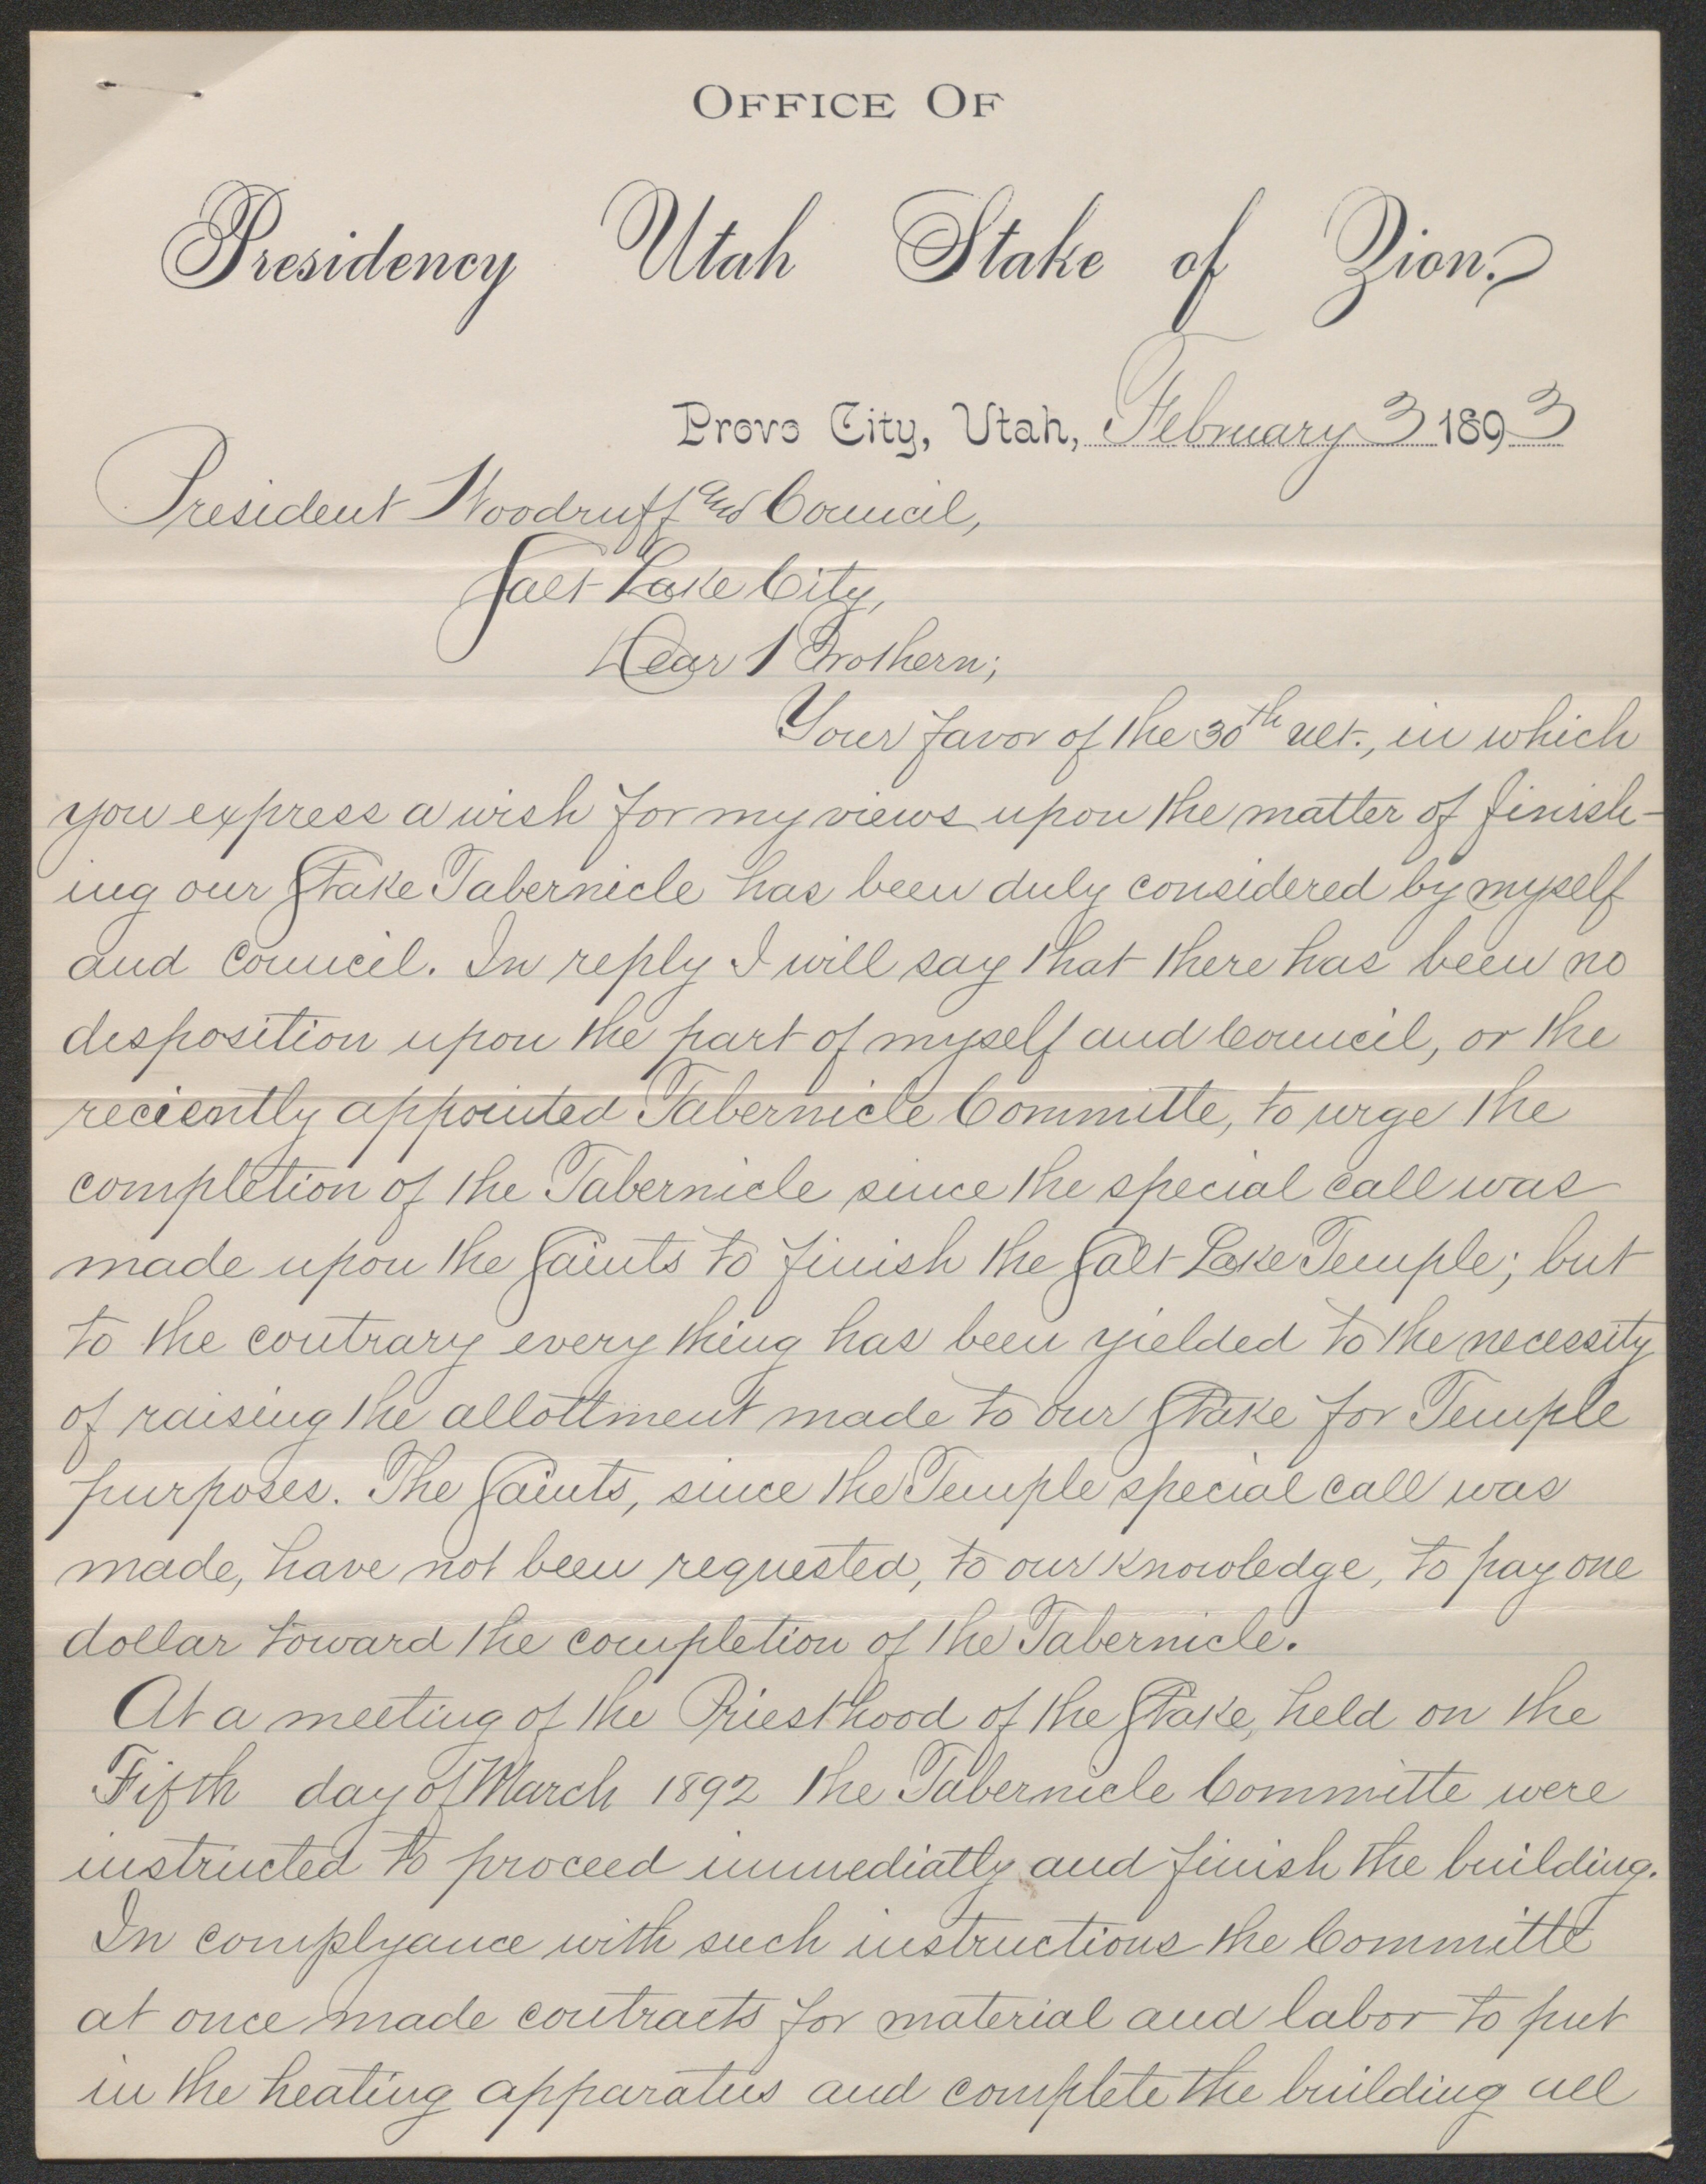 OFFICE OF
Presidency Utah Stake of Zion.
Provo City, Utah, February 3 1893
President Woodruff and Council,
Salt Lake City,
Dear Brothern;
Your favor of the 30th ult., in which
you express a wish for my views upon the matter of finish-
ing our Stake Tabernicle has been duly considered by myself
and council. In reply I will say that there has been no
disposition upon the part of myself and Council, or the
reciently appointed Tabernicle Committe, to urge the
completion of the Tabernicle since the special call was
made upon the Saints to finish the Salt Lake Temple; but
to the contrary every thing has been yielded to the necessity
of raising the allottment made to our Stake for Temple
purposes. The Saints, since the Temple special call was
made, have not been requested, to our knowledge, to pay one
dollar toward the completion of the Tabernicle.
At a meeting of the Priesthood of the Stake, held on the
Fifth day of March 1892 the Tabernicle Committe were
instructed to proceed immediatly and finish the building.
In complyance with such instructions the Committe
at once made contracts for material and labor to put
in the heating apparatus and complete the building all